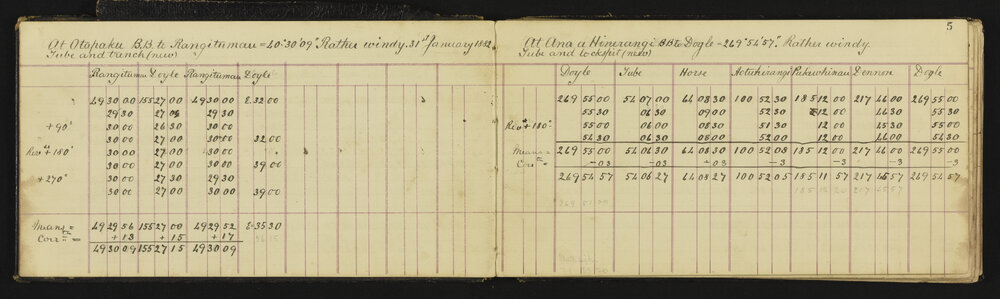 At Otapaku B.B. to Rangitumau = 40°30'09" Rather windy. 31st January 1882
Tube and trench (new)
Rangitumau Doyle Rangitumau Doyle
49 30 00 155 27 00 49 30 00 E. 32 00
29 30 27 06 29 30
+90° 30 00 26 30 30 00
30 00 27 00 30 00 32 00
Revd + 180° 30 00 27 00 30 00
30 00 27 00 30 00 39 00
+270° 30 00 27 30 29 30
30 00 27 00 30 00 39 00
Means = 49 29 56 155 27 00 49 29 52 E. 35 30
Corrn = + 13 + 15 + 17
49 30 09 155 27 15 49 30 09
5
At Ana a Hinerangi BB to Doyle - 269°54'57" Rather windy.
Tube and lockspit (new)
Doyle Tube Horse Aotuhirangi Pukewhinau Dennon Doyle
269 55 00 54 07 00 64 08 30 100 52 30 185 12 00 217 46 00 269 55 00
55 30 06 30 09 00 52 30 12 00 46 30 55 30
Revd + 180° 55 00 06 00 08 30 51 30 12 00 45 30 55 00
54 30 06 30 08 00 52 00 12 00 46 00 54 30
Means = 269 55 00 54 06 30 64 08 30 100 52 08 185 12 00 217 46 00 269 55 00
Corrn = -03 -03 -03 -3 -3 -3 -3
269 54 57 54 06 27 64 08 27 100 52 05 185 11 57 217 45 57 269 54 57